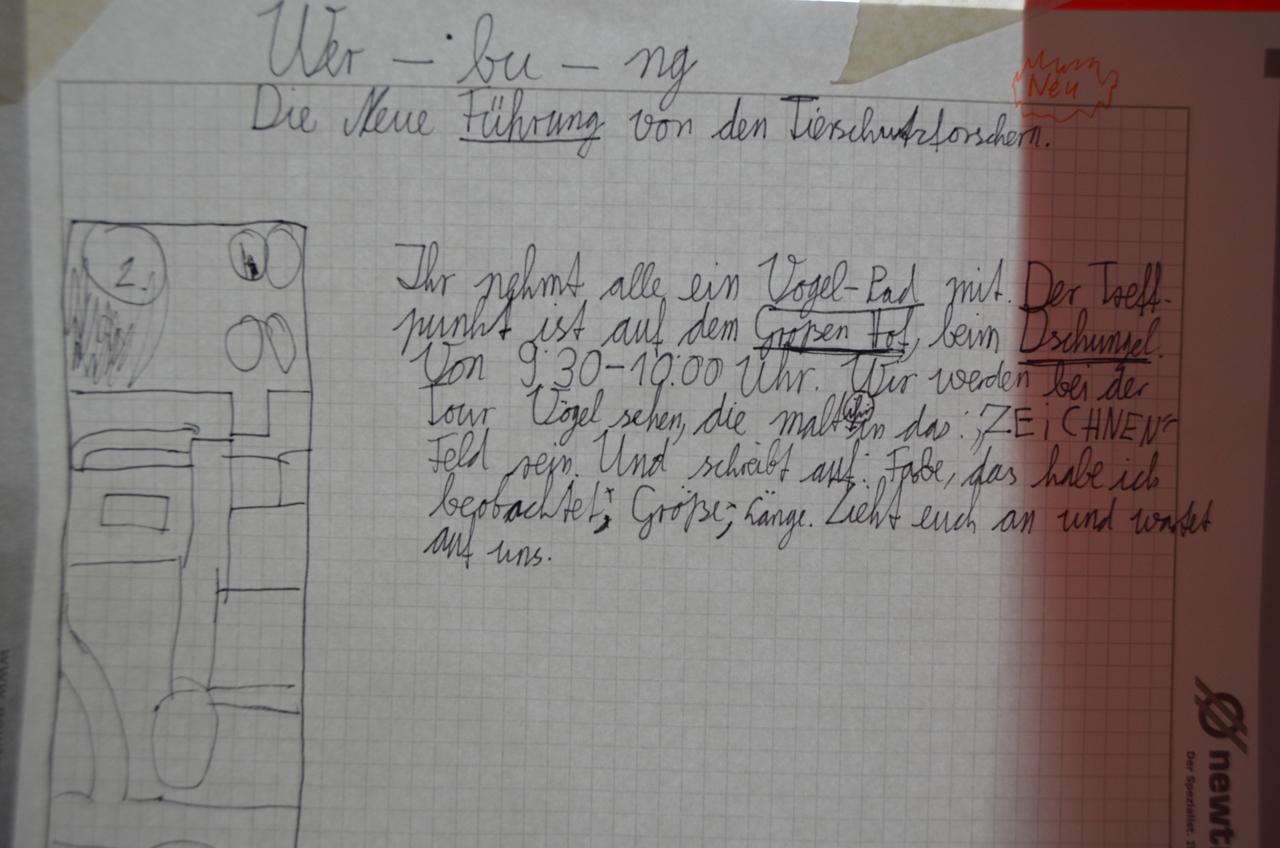 Wer - bu - ng
Neu
Die Neue Führung von den Tierschutzforschern.
2.
Ihr nehmt alle ein Vogel-Pad mit. Der Treff-
punkt ist auf dem Großen Hof, beim Dschungel.
Von 9:30-10:00 Uhr. Wir werden bei der
Tour Vögel sehen, die malt ihr in das: "ZEiCHNEN"-
Feld rein. Und schreibt auf: Farbe, das habe ich
beobachtet; Größe; Länge. Zieht euch an und wartet
auf uns.
newt
Der Spezialist.
www.